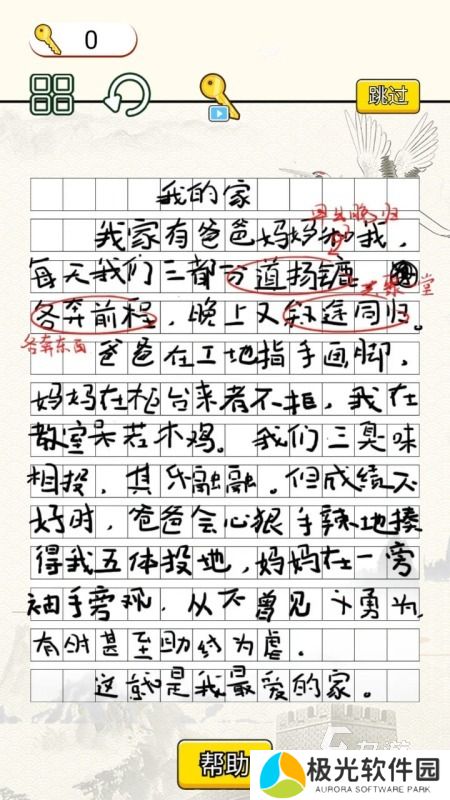 0
跳过
我的家
早出晚归
我家有爸爸妈妈和我，
每天我们三都分道扬镳
聚 堂
各奔前程，晚上又殊途同归。
各奔东西
爸爸在工地指手画脚，
妈妈在柜台来者不拒，我在
教室呆若木鸡。我们三臭味
相投，其乐融融。但成绩不
好时，爸爸会心狠手辣地揍
得我五体投地，妈妈在一旁
袖手旁观，从不曾见 勇为，
有时甚至助纣为虐。
这就是我最爱的家。
帮助
极光软件园
AURORA SOFTWARE PARK